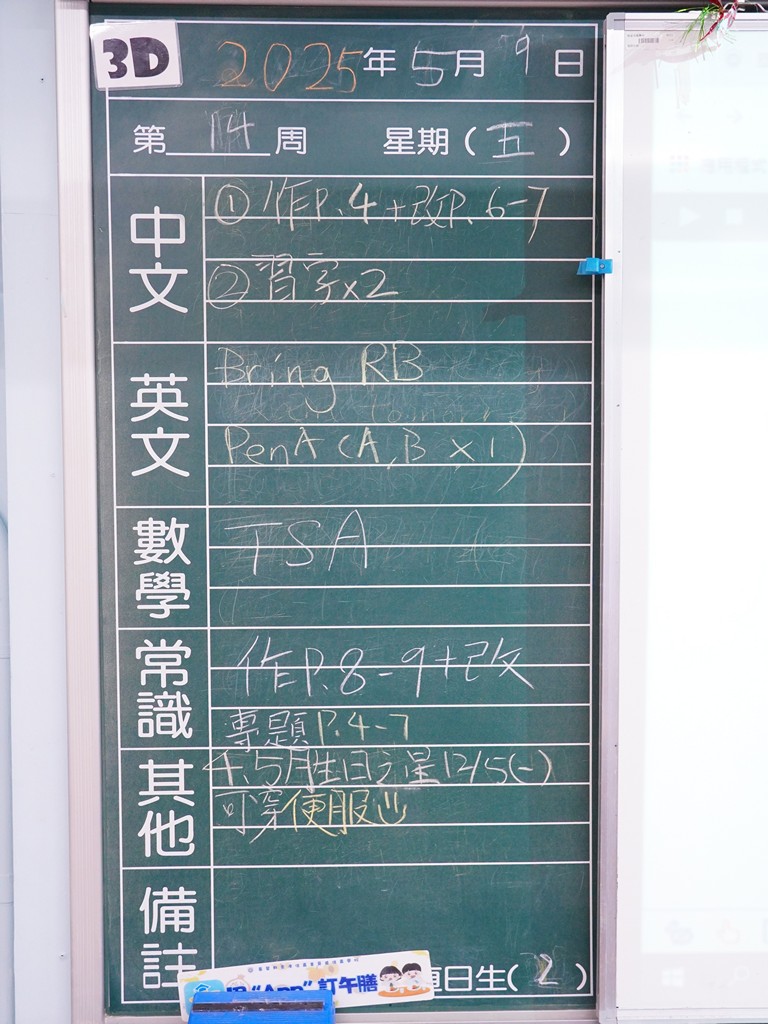 3D
2025年5月9日
第14周 星期(五)
中文
①作P.4+改P.6-7
②習字x2
英文
Bring RB
Pen A (A,B x1)
數學
TSA
常識
作P.8-9+改
專題P.4-7
其他
4,5月生日之星12/5(一)
可穿便服
備註
"App"訂午膳
直日生(2)